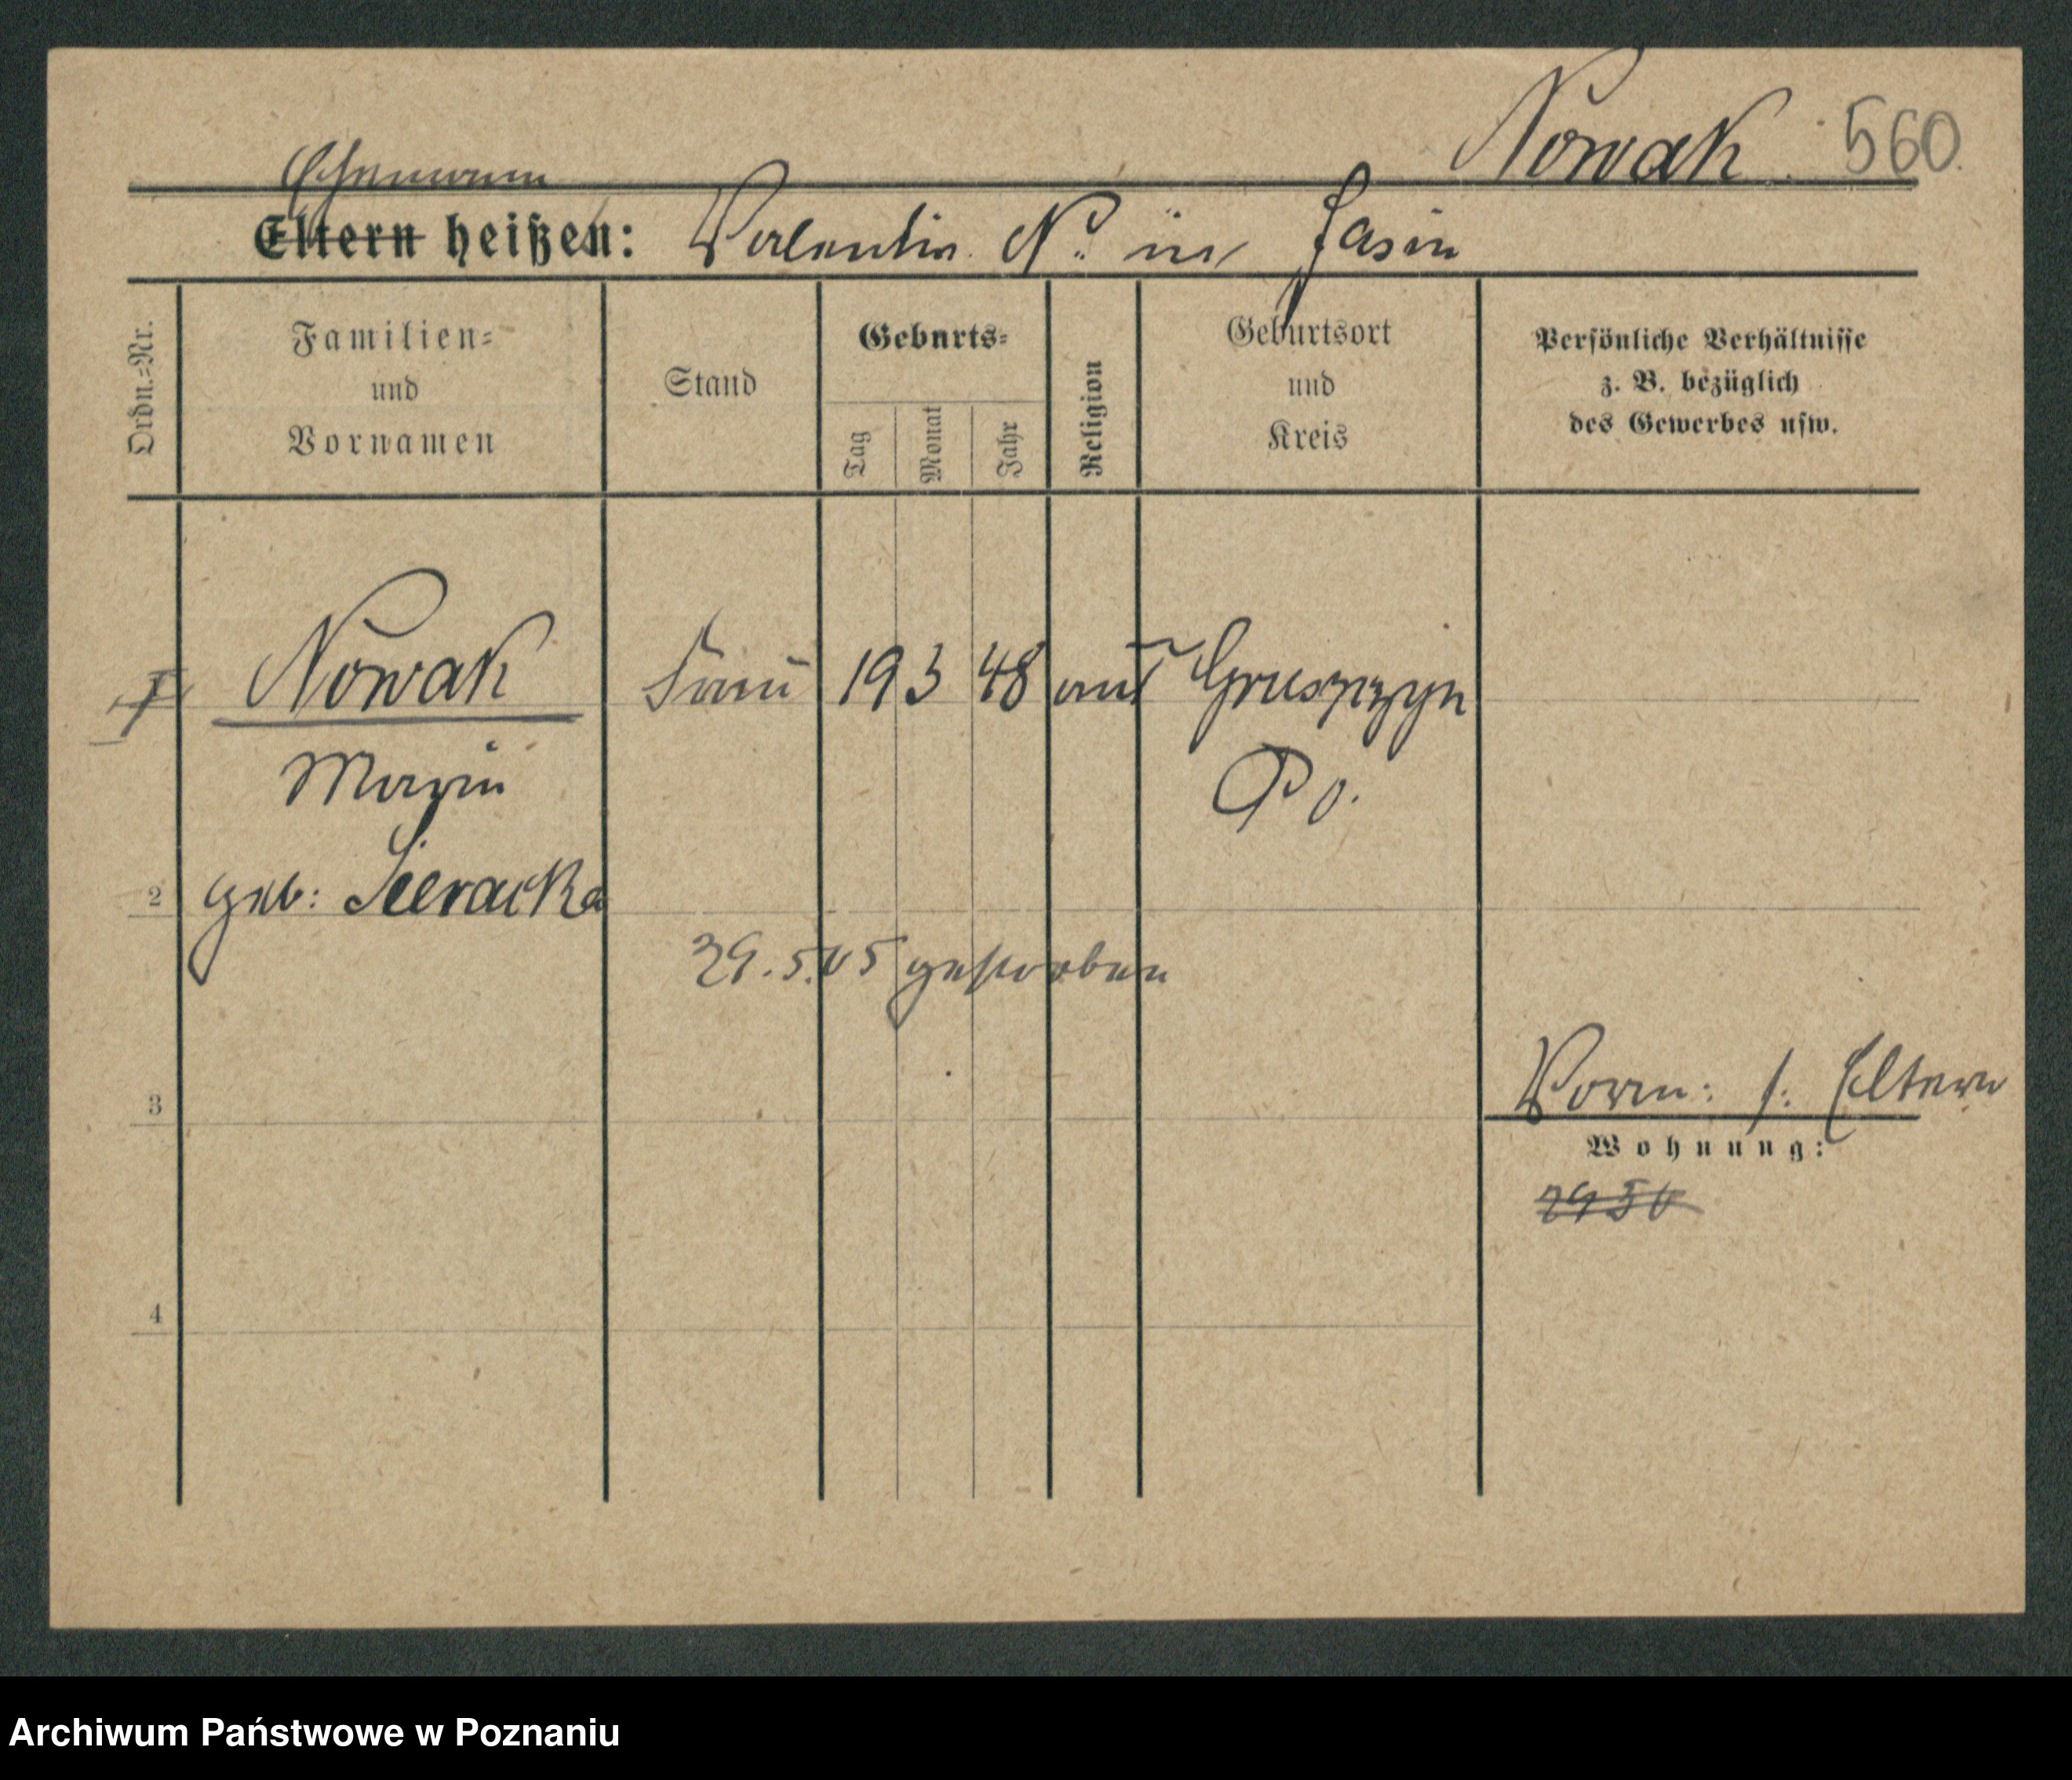 Nowak 560.
Ehemann
Eltern heißen: Valentin N. in Jasin
Ordn.=Nr.
Familien=
und
Vornamen
Stand
Geburts=
Tag
Monat
Jahr
Religion
Geburtsort
und
Kreis
Persönliche Verhältnisse
z. B. bezüglich
des Gewerbes usw.
Nowak Frau 19 3 48 Gruszczyn
Marie Po.
2 geb: Sieracka
29.5.05 gestorben
3 Vorm: s: Eltern
Wohnung:
2950
4
Archiwum Państwowe w Poznaniu